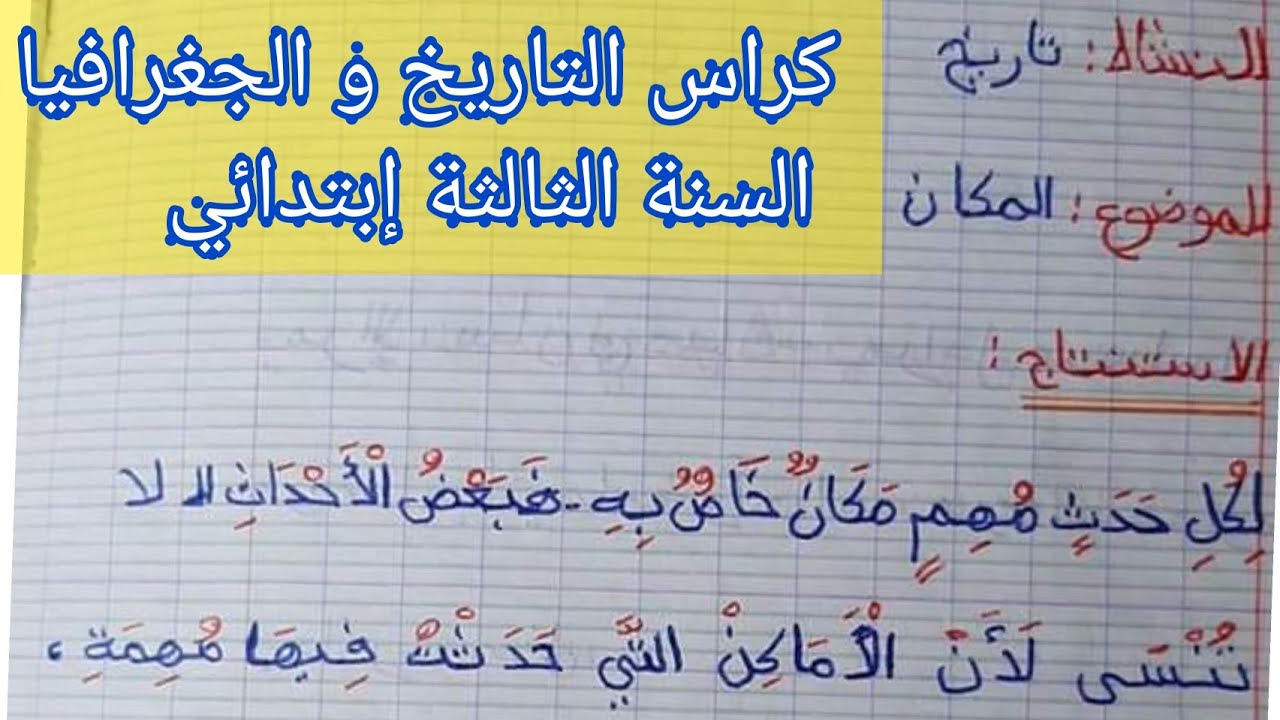 كراس التاريخ و الجغرافيا
السنة الثالثة إبتدائي
النشاط: تاريخ
الموضوع: المكان
الاستنتاج:
لِكُلِ حَدَثٍ مُهِمٍ مَكَانٌ خَاصٌ بِهِ. فَبَعْضُ الْأَحْدَاثِ لا
تُنْسَى لَأَنْ الْأَمَاكِنْ التَّي حَدَثْتْ فِيهَا مُهِمَةِ،